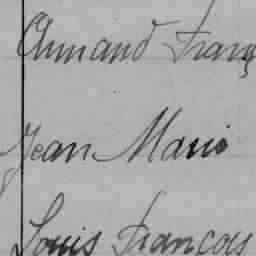 Armand Franç
Jean Marie
Louis François